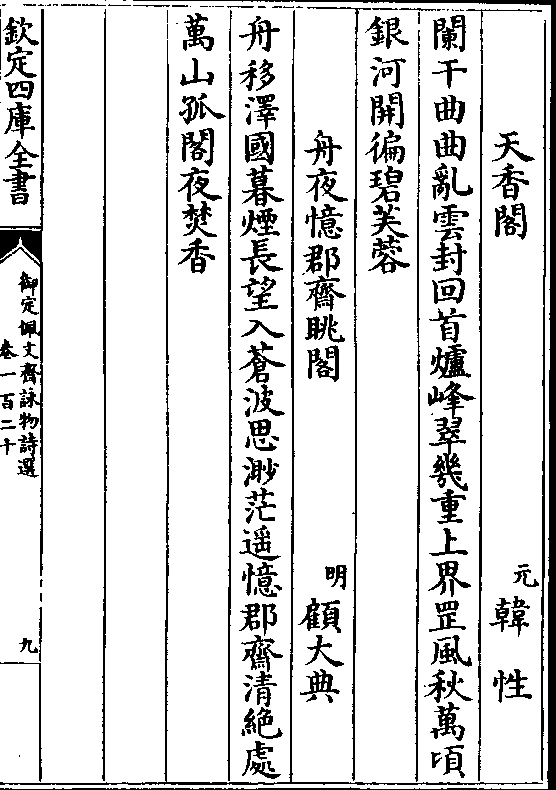 天香閣 元 韓性
闌干曲曲亂雲封回首爐峰翠幾重上界罡風秋萬頃
銀河開徧碧芙蓉
舟夜憶郡齋眺閣 明 顧大典
舟移澤國暮煙長望入蒼波思渺茫遥憶郡齋清絶處
萬山孤閣夜焚香
欽定四庫全書
御定佩文齋詠物詩選
卷一百二十
九